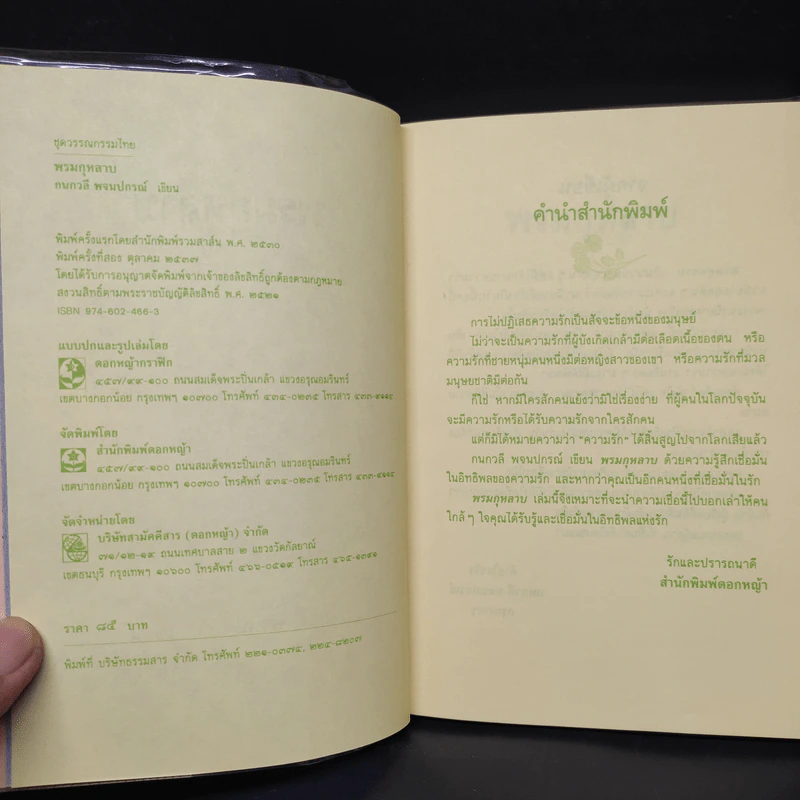 ชุดวรรณกรรมไทย
พรมกุหลาบ
กนกวลี พจนปกรณ์ เขียน
พิมพ์ครั้งแรกโดยสำนักพิมพ์รวมสาส์น พ.ศ. ๒๕๓๐
พิมพ์ครั้งที่สอง ตุลาคม ๒๕๓๗
โดยได้รับการอนุญาตจัดพิมพ์จากเจ้าของลิขสิทธิ์ถูกต้องตามกฎหมาย
สงวนสิทธิ์ตามพระราชบัญญัติลิขสิทธิ์ พ.ศ. ๒๕๒๑
ISBN 974-602-466-3
แบบปกและรูปเล่มโดย
ดอกหญ้ากราฟิก
๔๕๗/๙๙-๑๐๐ ถนนสมเด็จพระปิ่นเกล้า แขวงอรุณอมรินทร์
เขตบางกอกน้อย กรุงเทพฯ ๑๐๗๐๐ โทรศัพท์ ๔๓๔-๐๒๓๕ โทรสาร ๔๓๓-๙๑๑๔
จัดพิมพ์โดย
สำนักพิมพ์ดอกหญ้า
๔๕๗/๙๙-๑๐๐ ถนนสมเด็จพระปิ่นเกล้า แขวงอรุณอมรินทร์
เขตบางกอกน้อย กรุงเทพฯ ๑๐๗๐๐ โทรศัพท์ ๔๓๔-๐๒๓๕ โทรสาร ๔๓๓-๙๑๑๔
จัดจำหน่ายโดย
บริษัทสามัคคีสาร (ดอกหญ้า) จำกัด
๗๑/๑๒-๑๙ ถนนเทศบาลสาย ๒ แขวงวัดกัลยาณ์
เขตธนบุรี กรุงเทพฯ ๑๐๖๐๐ โทรศัพท์ ๔๖๖-๐๕๑๙ โทรสาร ๔๖๕-๑๓๕๑
ราคา ๘๕ บาท
พิมพ์ที่ บริษัทธรรมสาร จำกัด โทรศัพท์ ๒๒๑-๐๓๗๔, ๒๒๔-๘๒๐๗
คำนำสำนักพิมพ์
การไม่ปฏิเสธความรักเป็นสัจจะข้อหนึ่งของมนุษย์
ไม่ว่าจะเป็นความรักที่ผู้บังเกิดเกล้ามีต่อเลือดเนื้อของตน หรือ
ความรักที่ชายหนุ่มคนหนึ่งมีต่อหญิงสาวของเขา หรือความรักที่มวล
มนุษยชาติมีต่อกัน
ก็ใช่ หากมีใครสักคนแย้งว่ามิใช่เรื่องง่าย ที่ผู้คนในโลกปัจจุบัน
จะมีความรักหรือได้รับความรักจากใครสักคน
แต่ก็มิได้หมายความว่า "ความรัก" ได้สิ้นสูญไปจากโลกเสียแล้ว
กนกวลี พจนปกรณ์ เขียน พรมกุหลาบ ด้วยความรู้สึกเชื่อมั่น
ในอิทธิพลของความรัก และหากว่าคุณเป็นอีกคนหนึ่งที่เชื่อมั่นในรัก
พรมกุหลาบ เล่มนี้จึงเหมาะที่จะนำความเชื่อนี้ไปบอกเล่าให้คน
ใกล้ๆ ใจคุณได้รับรู้และเชื่อมั่นในอิทธิพลแห่งรัก
รักและปรารถนาดี
สำนักพิมพ์ดอกหญ้า